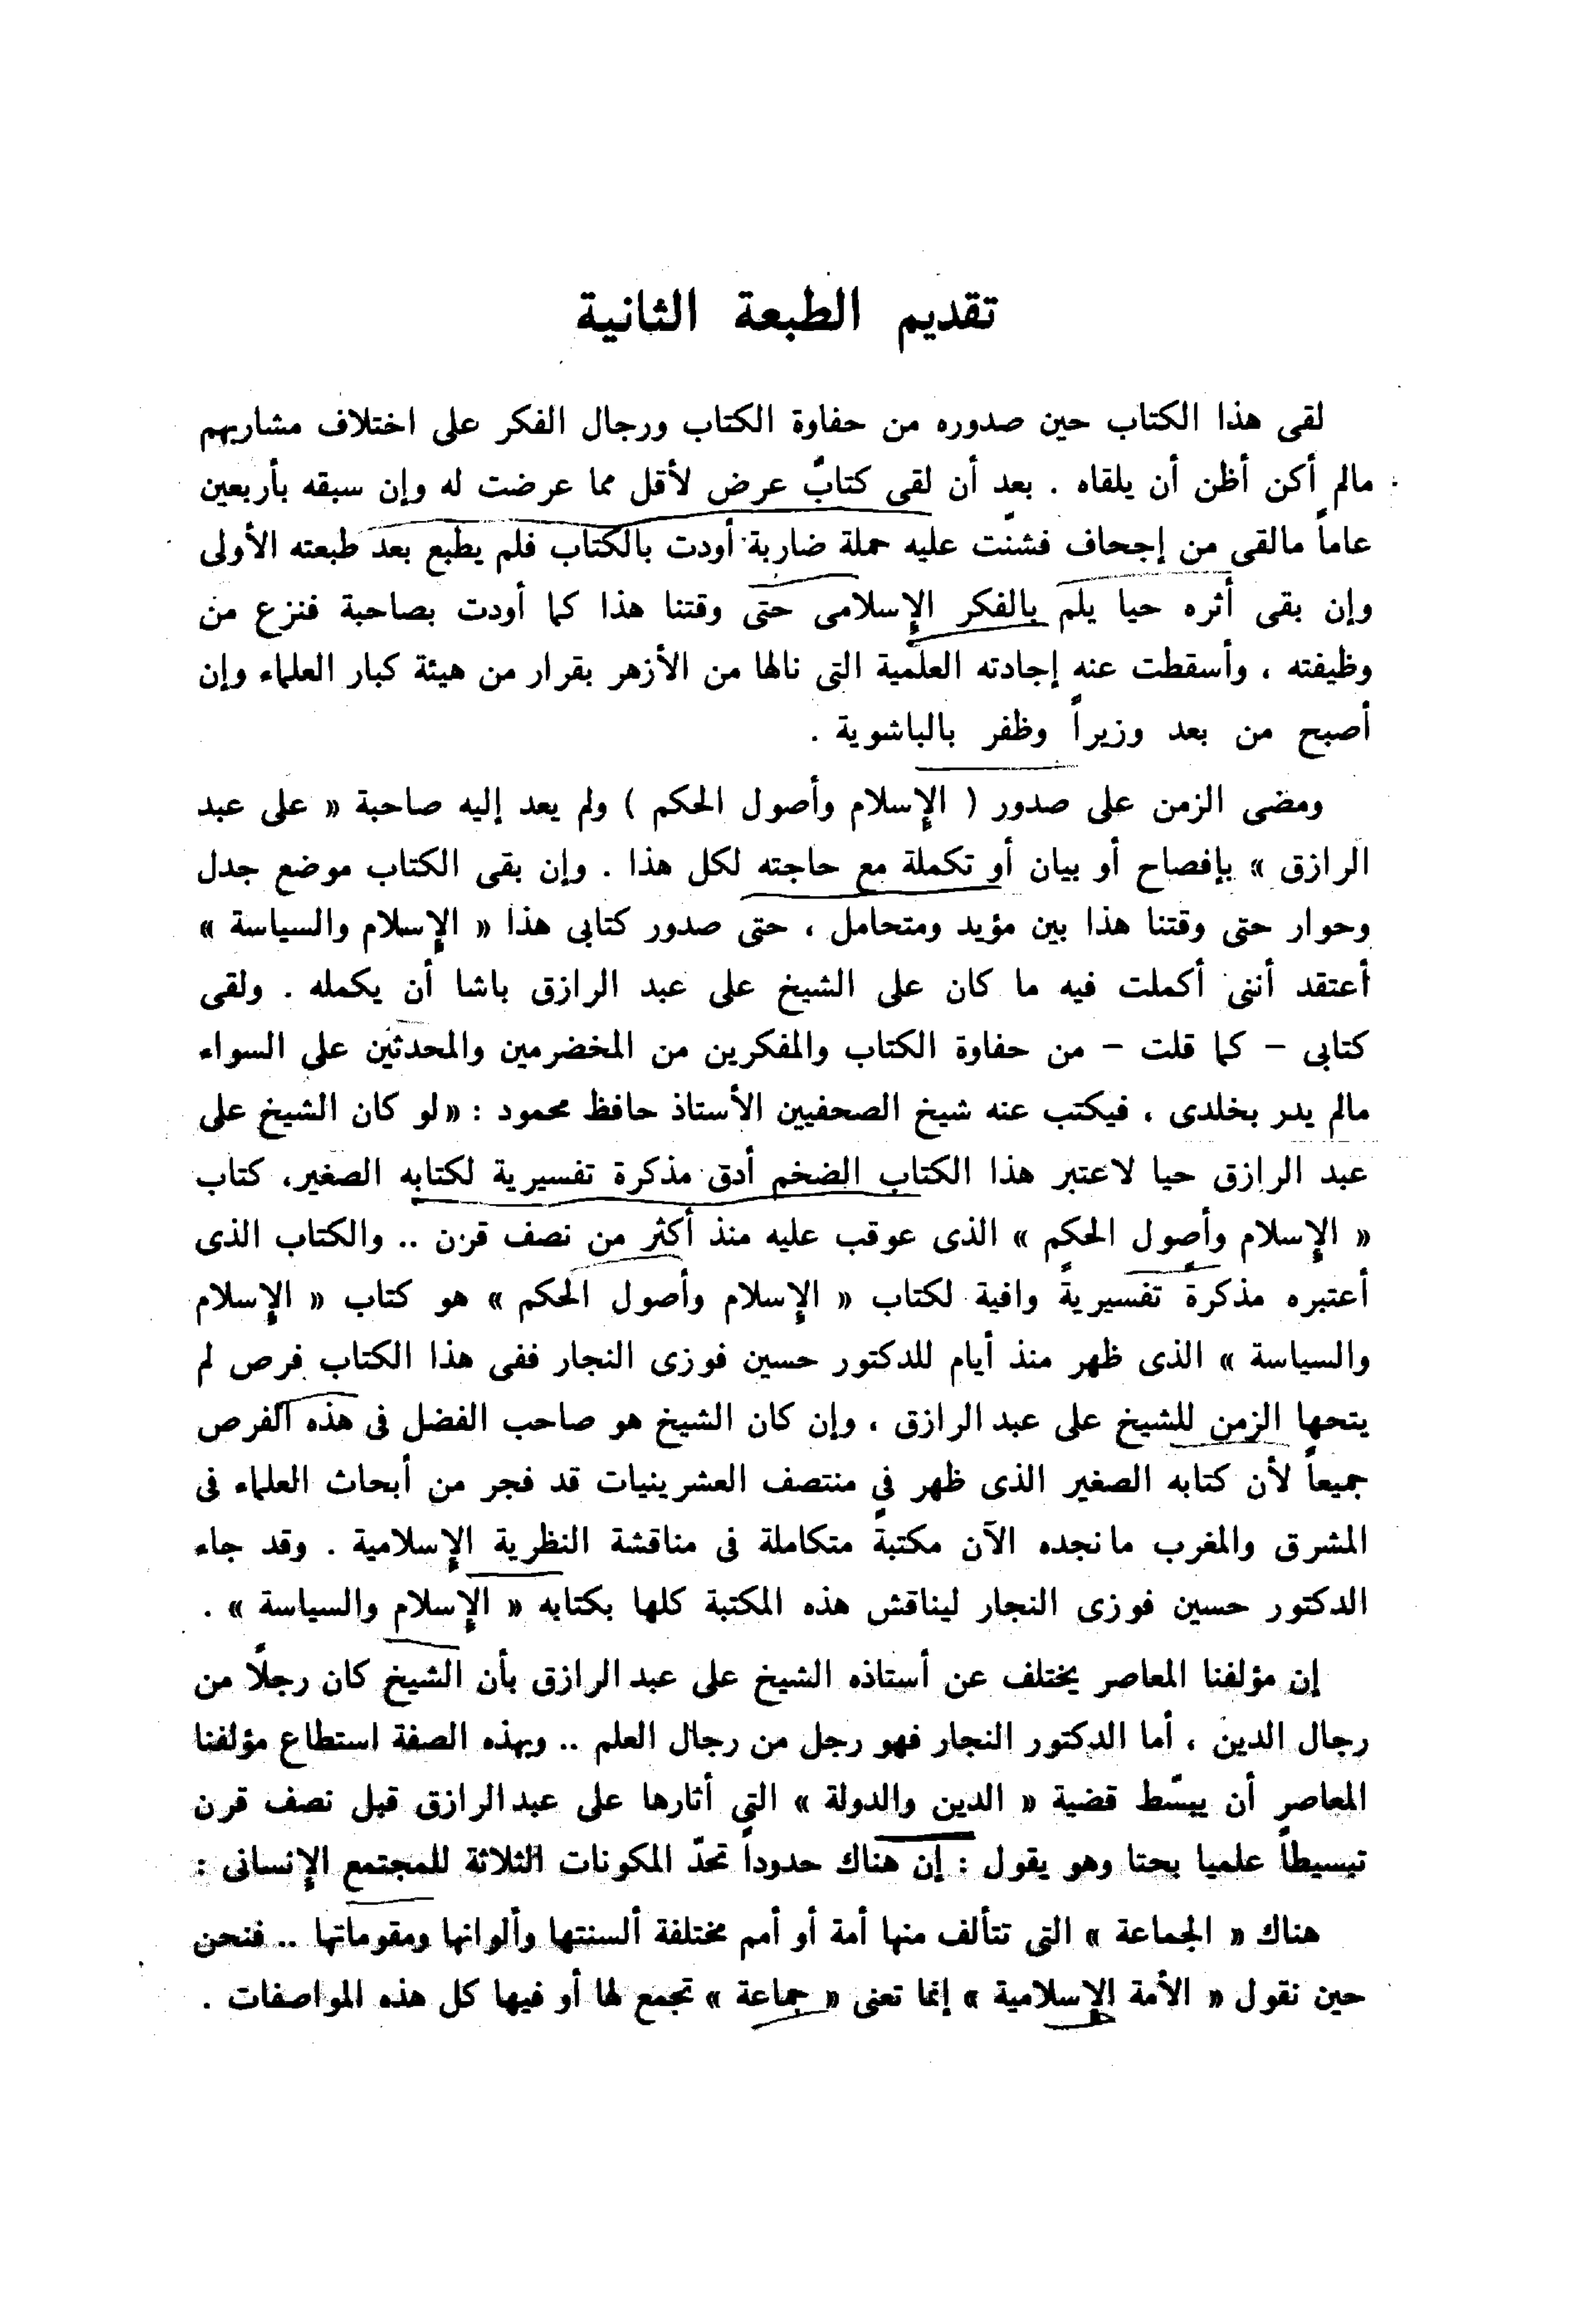 تقديم الطبعة الثانية
لقى هذا الكتاب حين صدوره من حفاوة الكتاب ورجال الفكر على اختلاف مشاربهم
مالم أكن أظن أن يلقاه . بعد أن لقى كتابٌ عرض لأقل مما عرضت له وإن سبقه بأربعين
عاماً مالقى من إجحاف فشنّت عليه حملة ضاربة أودت بالكتاب فلم يطبع بعد طبعته الأولى
وإن بقى أثره حيا يلم بالفكر الإسلامى حتى وقتنا هذا كما أودت بصاحبة فنزع من
وظيفته ، وأسقطت عنه إجادته العلمية التى نالها من الأزهر بقرار من هيئة كبار العلماء وإن
أصبح من بعد وزيراً وظفر بالباشوية .
ومضى الزمن على صدور ( الإسلام وأصول الحكم ) ولم يعد إليه صاحبة « على عبد
الرازق » بإفصاح أو بيان أو تكملة مع حاجته لكل هذا . وإن بقى الكتاب موضع جدل
وحوار حتى وقتنا هذا بين مؤيد ومتحامل ، حتى صدور كتابى هذا « الإسلام والسياسة »
أعتقد أننى أكملت فيه ما كان على الشيخ على عبد الرازق باشا أن يكمله . ولقى
كتابى – كما قلت – من حفاوة الكتاب والمفكرين من المخضرمين والمحدثين على السواء
مالم يدر بخلدى ، فيكتب عنه شيخ الصحفيين الأستاذ حافظ محمود : «لو كان الشيخ على
عبد الرازق حيا لاعتبر هذا الكتاب الضخم أدق مذكرة تفسيرية لكتابه الصغير، كتاب
« الإسلام وأصول الحكم » الذى عوقب عليه منذ أكثر من نصف قرن .. والكتاب الذى
أعتبره مذكرةً تفسيريةً وافية لكتاب « الإسلام وأصول الحكم » هو كتاب « الإسلام
والسياسة » الذى ظهر منذ أيام للدكتور حسين فوزى النجار ففى هذا الكتاب فرص لم
يتحها الزمن للشيخ على عبد الرازق ، وإن كان الشيخ هو صاحب الفضل فى هذه الفرص
جميعاً لأن كتابه الصغير الذى ظهر في منتصف العشرينيات قد فجر من أبحاث العلماء فى
المشرق والمغرب مانجده الآن مكتبةً متكاملة فى مناقشة النظرية الإسلامية . وقد جاء
الدكتور حسين فوزى النجار ليناقش هذه المكتبة كلها بكتابه « الإسلام والسياسة » .
إن مؤلفنا المعاصر يختلف عن أستاذه الشيخ على عبد الرازق بأن الشيخ كان رجلًا من
رجال الدين ، أما الدكتور النجار فهو رجل من رجال العلم .. وبهذه الصفة استطاع مؤلفنا
المعاصر أن يبسّط قضية « الدين والدولة » التي أثارها على عبد الرازق قبل نصف قرن
تبسيطاً علميا بحتا وهو يقول : إن هناك حدوداً تحدّ المكونات الثلاثة للمجتمع الإنسانى :
هناك « الجماعة » التى تتألف منها أمة أو أمم مختلفة ألسنتها وألوانها ومقوماتها .. فنحن
حين نقول « الأمة الإسلامية » إنما تعنى « جماعة » تجمع لها أو فيها كل هذه المواصفات .